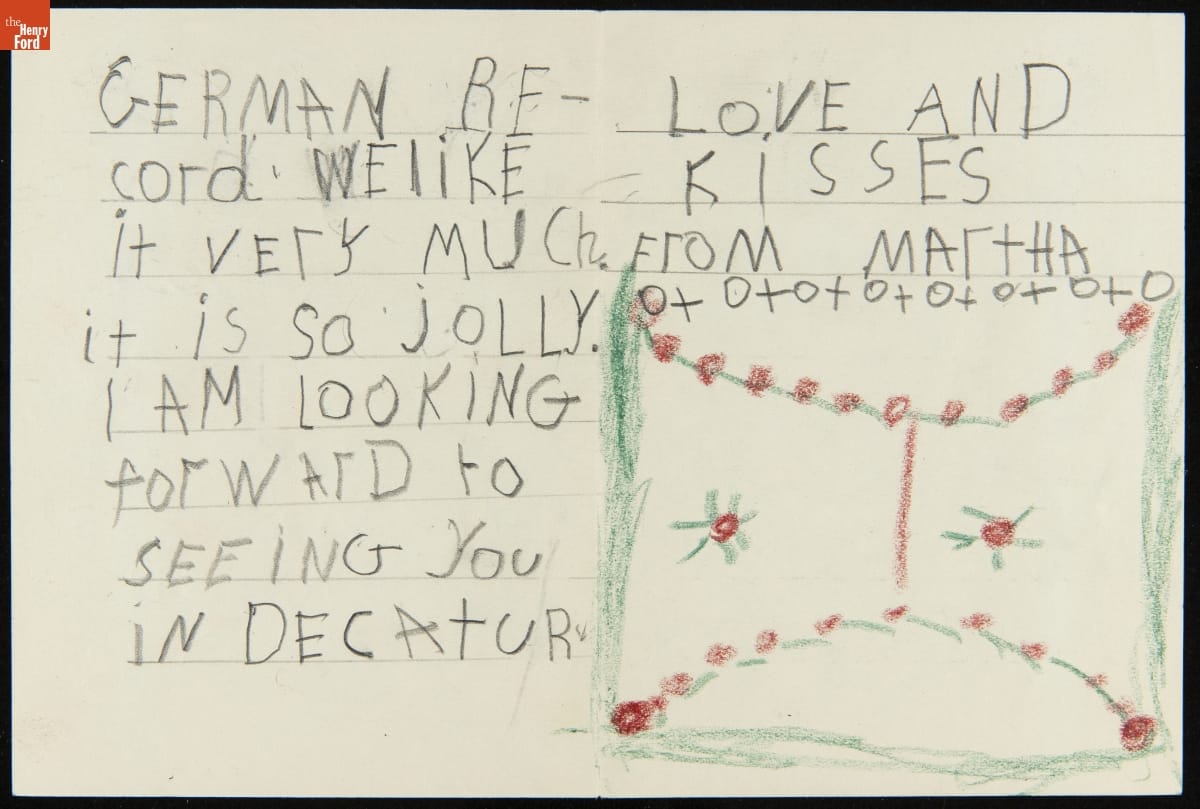 the
Henry
Ford
GERMAN RE-
cord. WE liKE
it VErY MUCh.
it iS SO jOLLY.
I AM LOOKiNG
forWArD to
SEEiNG YOU
iN DECAtUR
LOVE AND
KISSES
FrOM MArtHA
O+ O+O+ O+ O+ O+ O+O